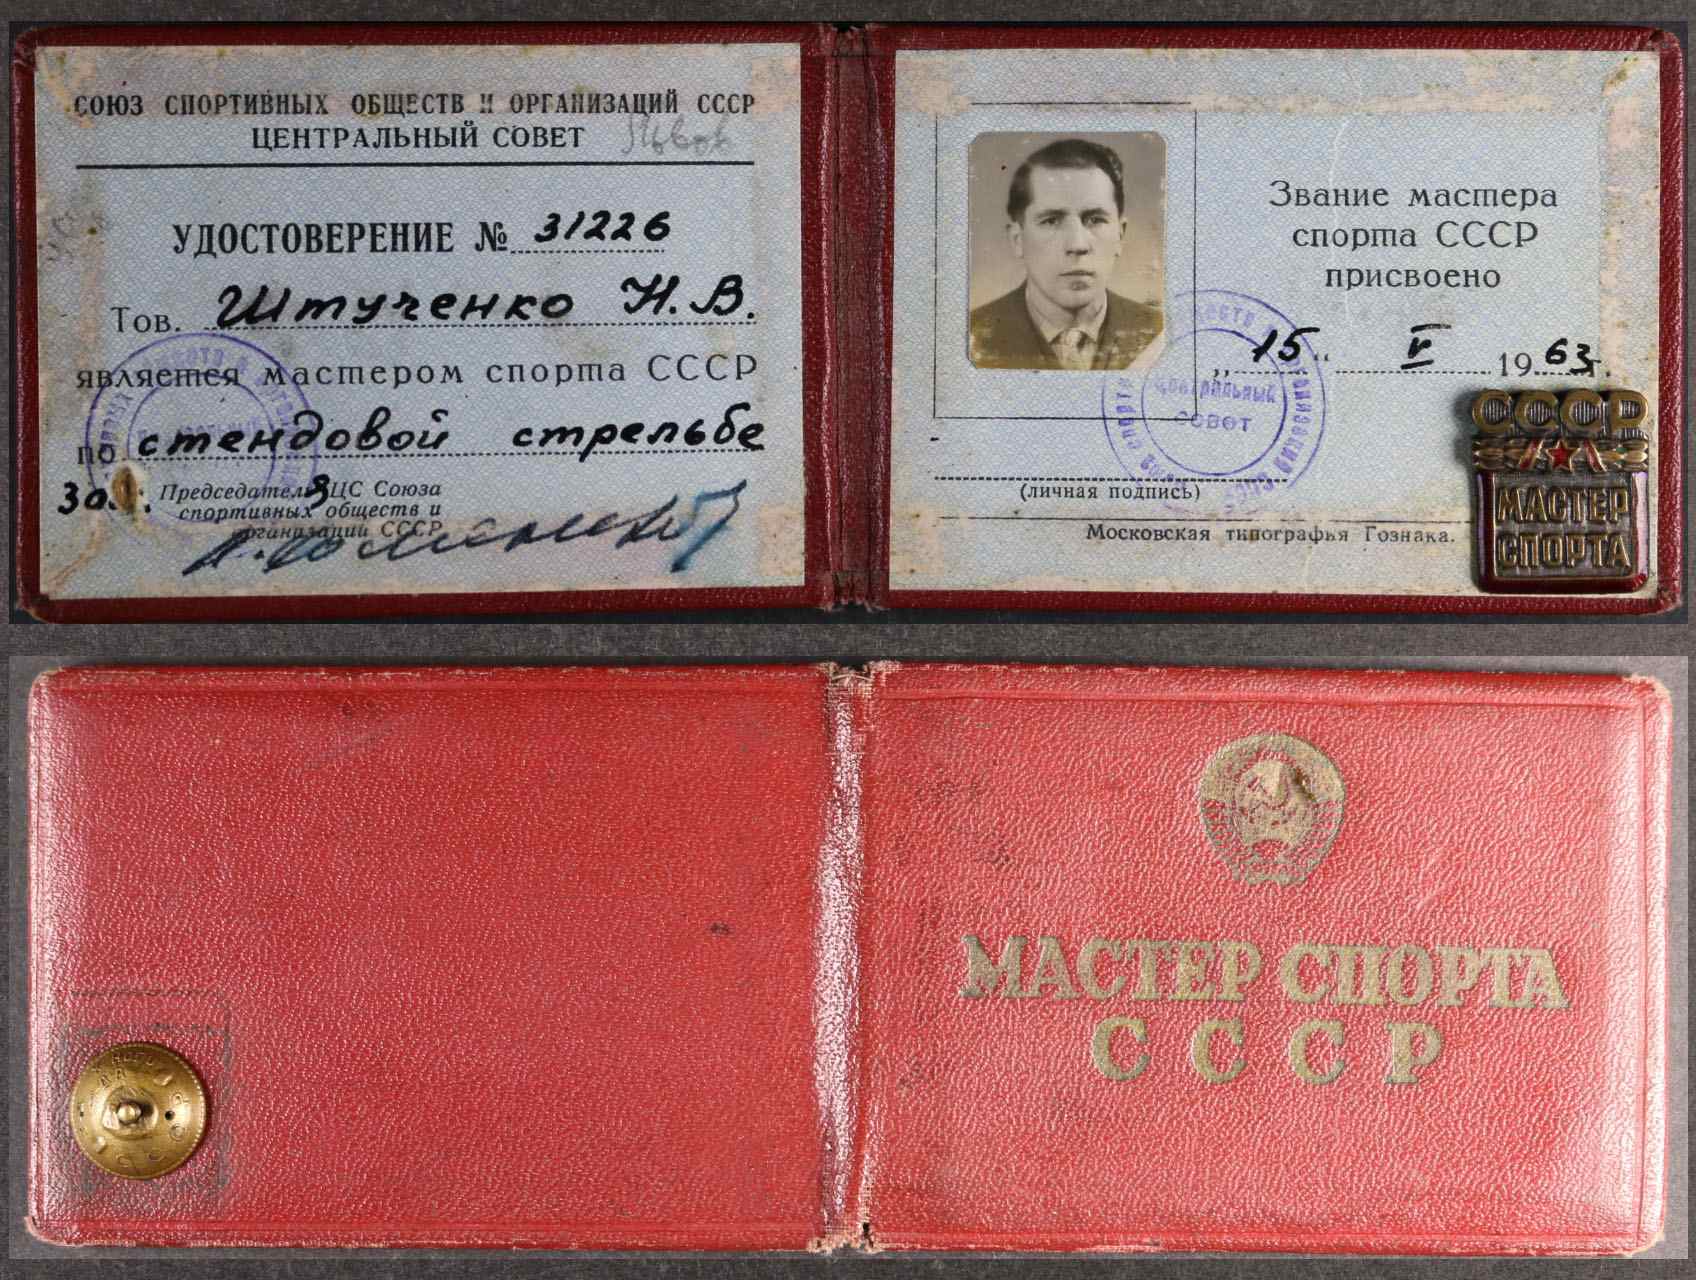 СОЮЗ СПОРТИВНЫХ ОБЩЕСТВ И ОРГАНИЗАЦИЙ СССР
ЦЕНТРАЛЬНЫЙ СОВЕТ
Львов
УДОСТОВЕРЕНИЕ № 31226
Тов. Штученко Н. В.
является мастером спорта СССР
по стендовой стрельбе
Председатель ЦС Союза
спортивных обществ и
организаций СССР
Звание мастера
спорта СССР
присвоено
„ 15 “ V 1963 г.
Центральный
совет
(личная подпись)
Московская типография Гознака.
СССР
МАСТЕР
СПОРТА
МАСТЕР СПОРТА
СССР